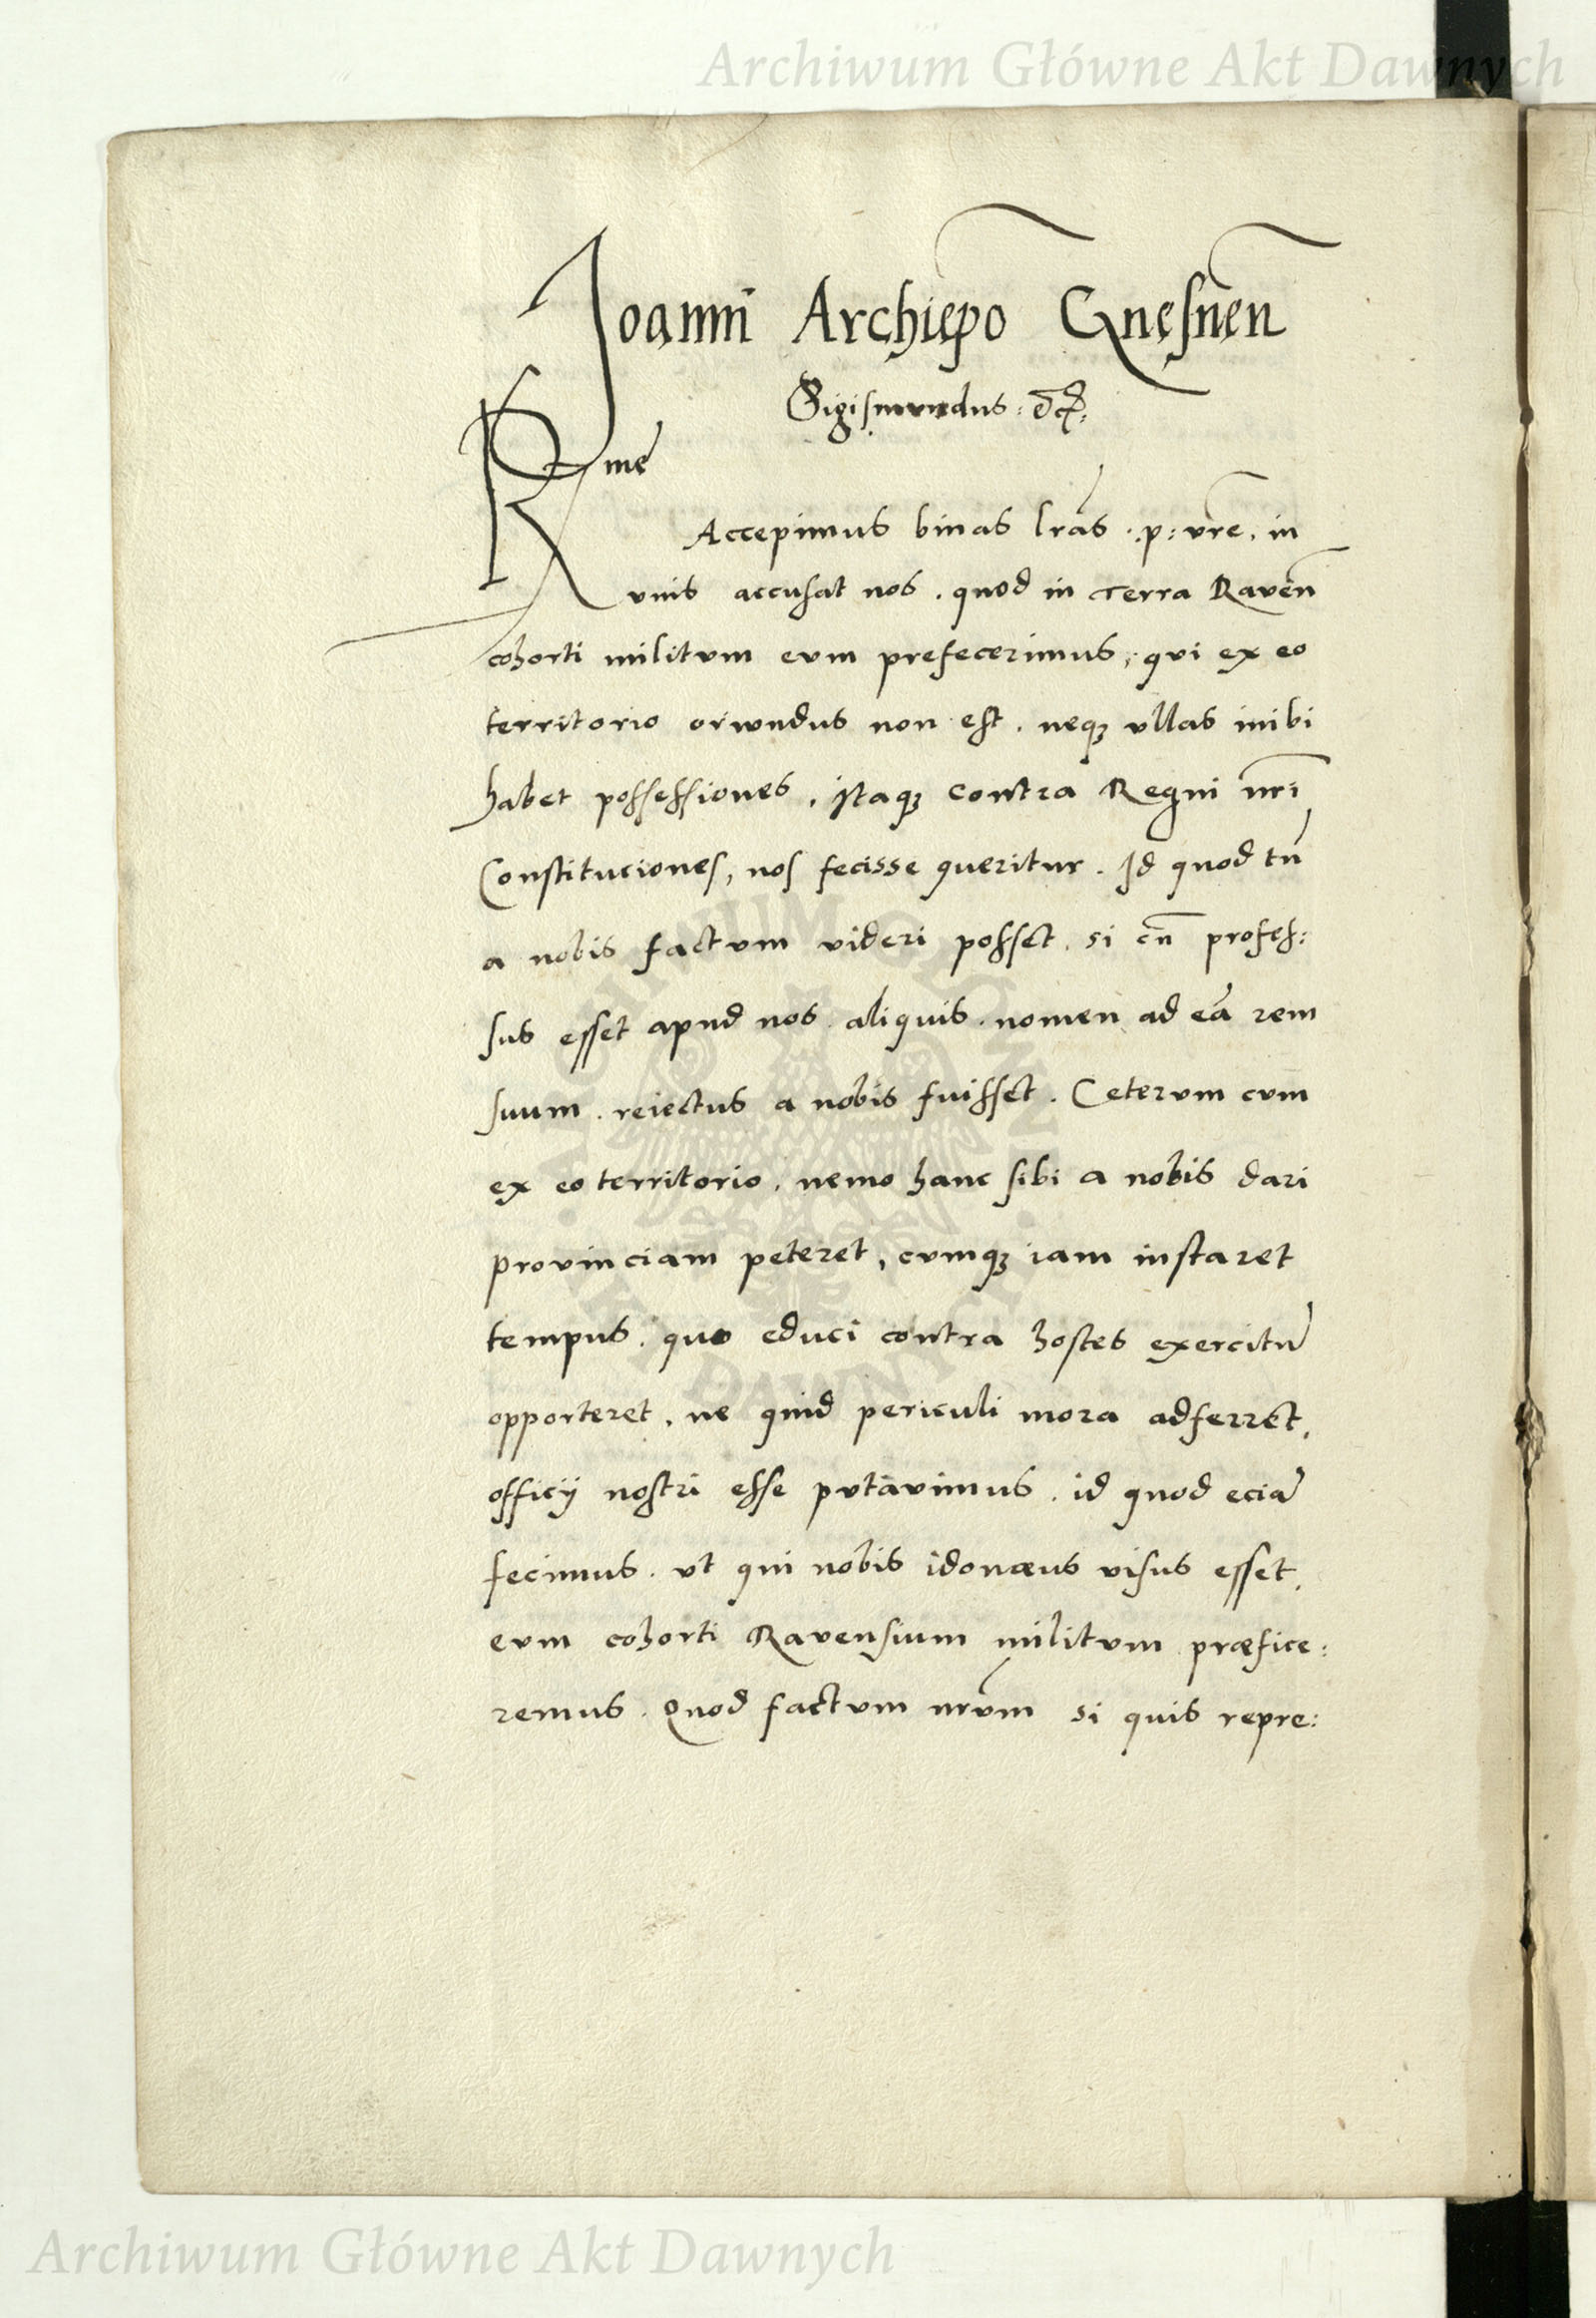 Archiwum Główne Akt Dawnych
Joanni Archiepo Gnesnen
Sigismundus: etc.
Rme
Accepimus binas lras .p: vre. in
vnis accusat nos. quod in Terra Raven
cohorti militvm evm prefecerimus, qvi ex eo
territorio oriundus non est. neqꝫ vllas inibi
habet possessiones, Itaqꝫ contra Regni nri
Constituciones, nos fecisse queritur. Id quod tũ
a nobis factvm videri posset. si cũ profes:
sus esset apud nos aliquis. nomen ad eã rem
suum. reiectus a nobis fuisset. Ceterum cvm
ex eo territorio. nemo hanc sibi a nobis dari
provinciam peteret, cvmqꝫ iam instaret
tempus. quo educi contra hostes exercitũ
opporteret. ne quid periculi mora adferret.
officij nostri esse pvtavimus. id quod eciã
fecimus. vt qui nobis idonæus visus esset.
evm cohorti Ravensium militvm præfice:
remus. Quod factvm nrvm si quis repre:
ARCHIWUM GŁÓWNE
AKT DAWNYCH
Archiwum Główne Akt Dawnych